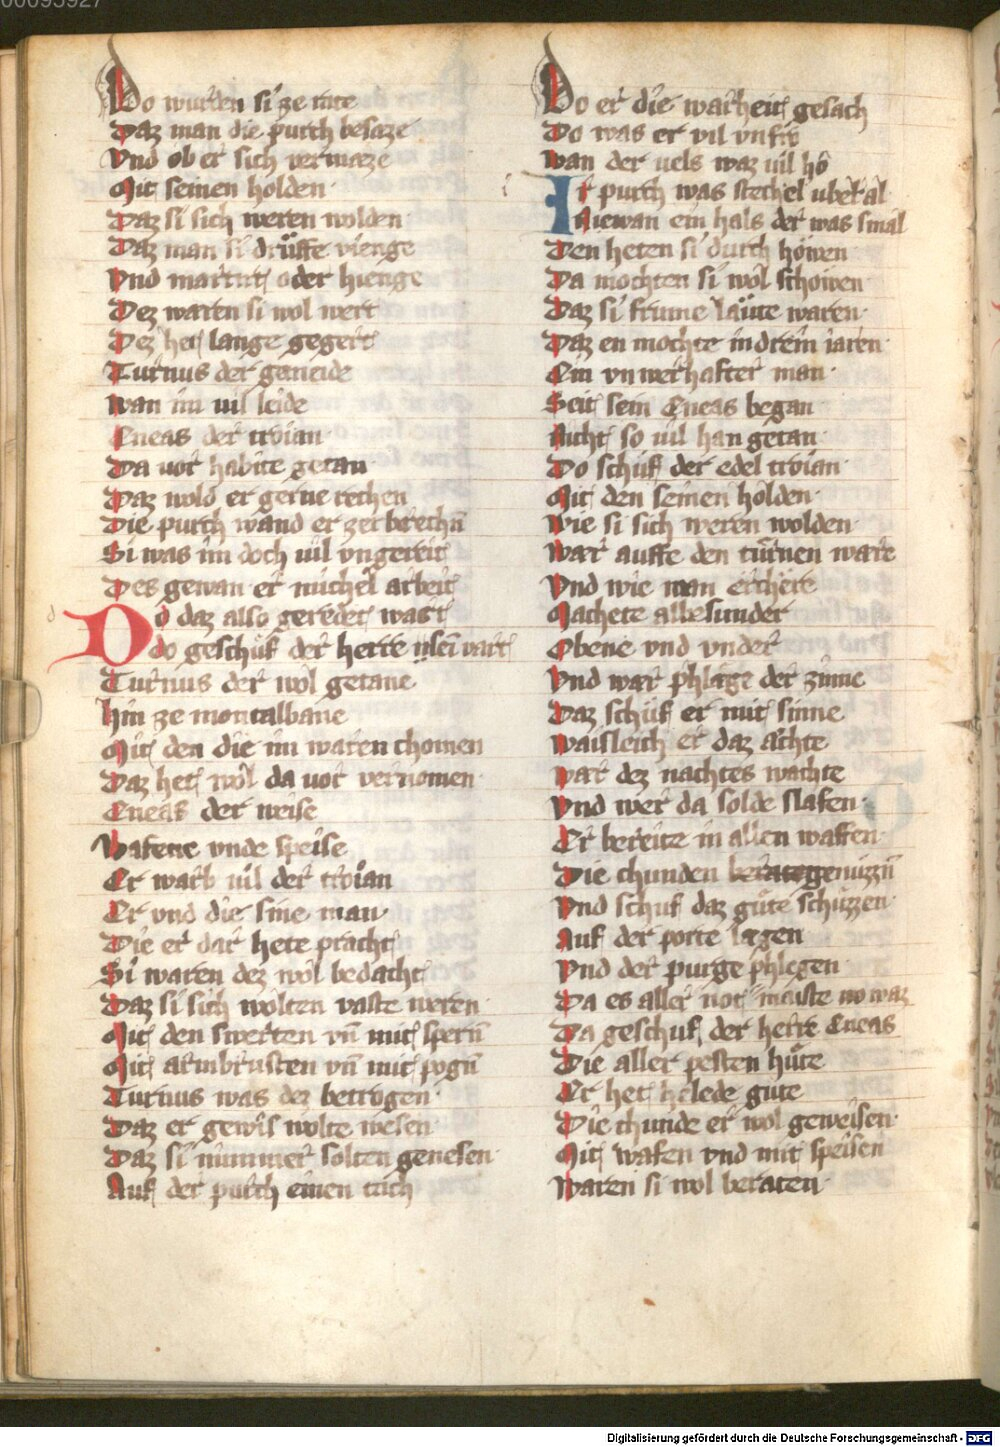 Do wurden si ze rate
Daz man die purch besaze
Vnd ob er sich vermaze
Mit seinen holden
Daz si sich weren wolden
Daz man si drüffe vienge
Vnd martert oder hienge
Dez waren si wol wert
Dez het lange gegert
Turnus der geneide
Wan im vil leide
Eneas der troian
Da vor habite getan
Daz wold er gerne rechen
Die purch wand er zerbrechn̄
Si was im doch vil vngereit
Des gewan er michel arbeit
Do daz also geredet wart
do geschuf der herre sein vart
Turnus der wol getane
Hin ze montalbane
Mit den die im waren chomen
Daz het wol da vor vernomen
Eneas der weise
Wafene vnde speise
Er warb vil der troian
Er vnd die sine man
Die er dar hete pracht
Si waren dez wol bedacht
Daz si sich wolten vaste weren
Mit den swerten vn̄ mit spern̄
Mit armbrusten vn̄ mit pogn̄
Turnus was dez betrogen
Daz er gewis wolte wesen
Daz si nimmer solten genesen
Auf der purch einen teich
Do er die warheit gesach
Do was er vil vnfro
Wan der vels waz vil ho
Ir purch was stechel vberal
Niewan ein hals der was smal
Den heten si durch höwen
Da mochten si wol schowen
Daz si frume läute waren
Daz en mochte in drein iaren
Ein vnwerhafter man
Seit sein Eneas began
Nicht so vil han getan
Do schuf der edel troian
Mit den seinen holden
Wie si sich weren wolden
War auffe den türnen ware
Vnd wie man erchere
Machete albesunder
Obene vnd vnder
Vnd war phlage der zinne
Daz schuf er mit sinne
Waisleich er daz achte
War dez nachtes wachte
Vnd wer da solde slafen
Er bereite in allen waffen
Die chunden genüzzn̄
Vnd schuf daz güte schüzzen
Auf der porte lagen
Vnd der purge phlegen
Da es aller not maiste no waz
Da geschuf der herre Eneas
Die aller pesten hüte
Er het helede gute
Die chunde er wol geweisen
Mit wafen vnd mit speisen
Waren si wol beraten
Digitalisierung gefördert durch die Deutsche Forschungsgemeinschaft - DFG